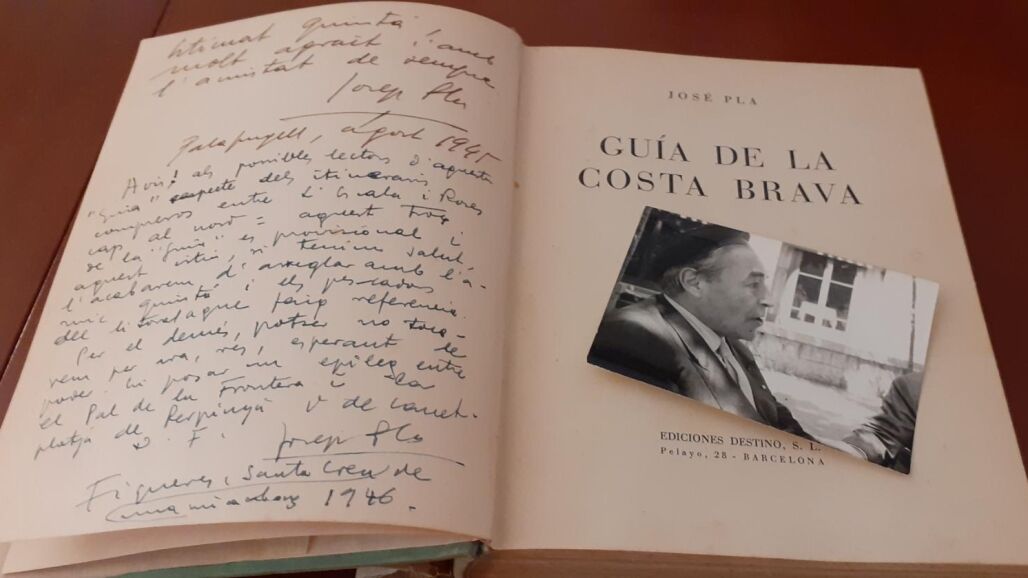 Estimat Quintà! amb
molt agraït i
l'amistat de sempre
Josep Pla
Palafrugell, agost 1945
Avís! als possibles lectors d'aquesta
"Guia" respecte dels itineraris
compresos entre L'Escala i Roses
cap al nord = aquest tros
de la "Guia" es provisional i
aquest istiu, si tenim salut
l'acabarem d'arreglar amb l'a-
mic Quintà i els pescadors
del litoral que faig referencia.
Per el demés, potser no toca-
rem per ara, res, esperant de
poder hi posar un epíleg entre
el Pal de la Frontera i la
platja de Perpinyà V de Canet-
Josep Pla
Figueres, Santa Creu de
1946.
JOSÉ PLA
GUÍA DE LA
COSTA BRAVA
EDICIONES DESTINO, S. L.
Pelayo, 28 - BARCELONA